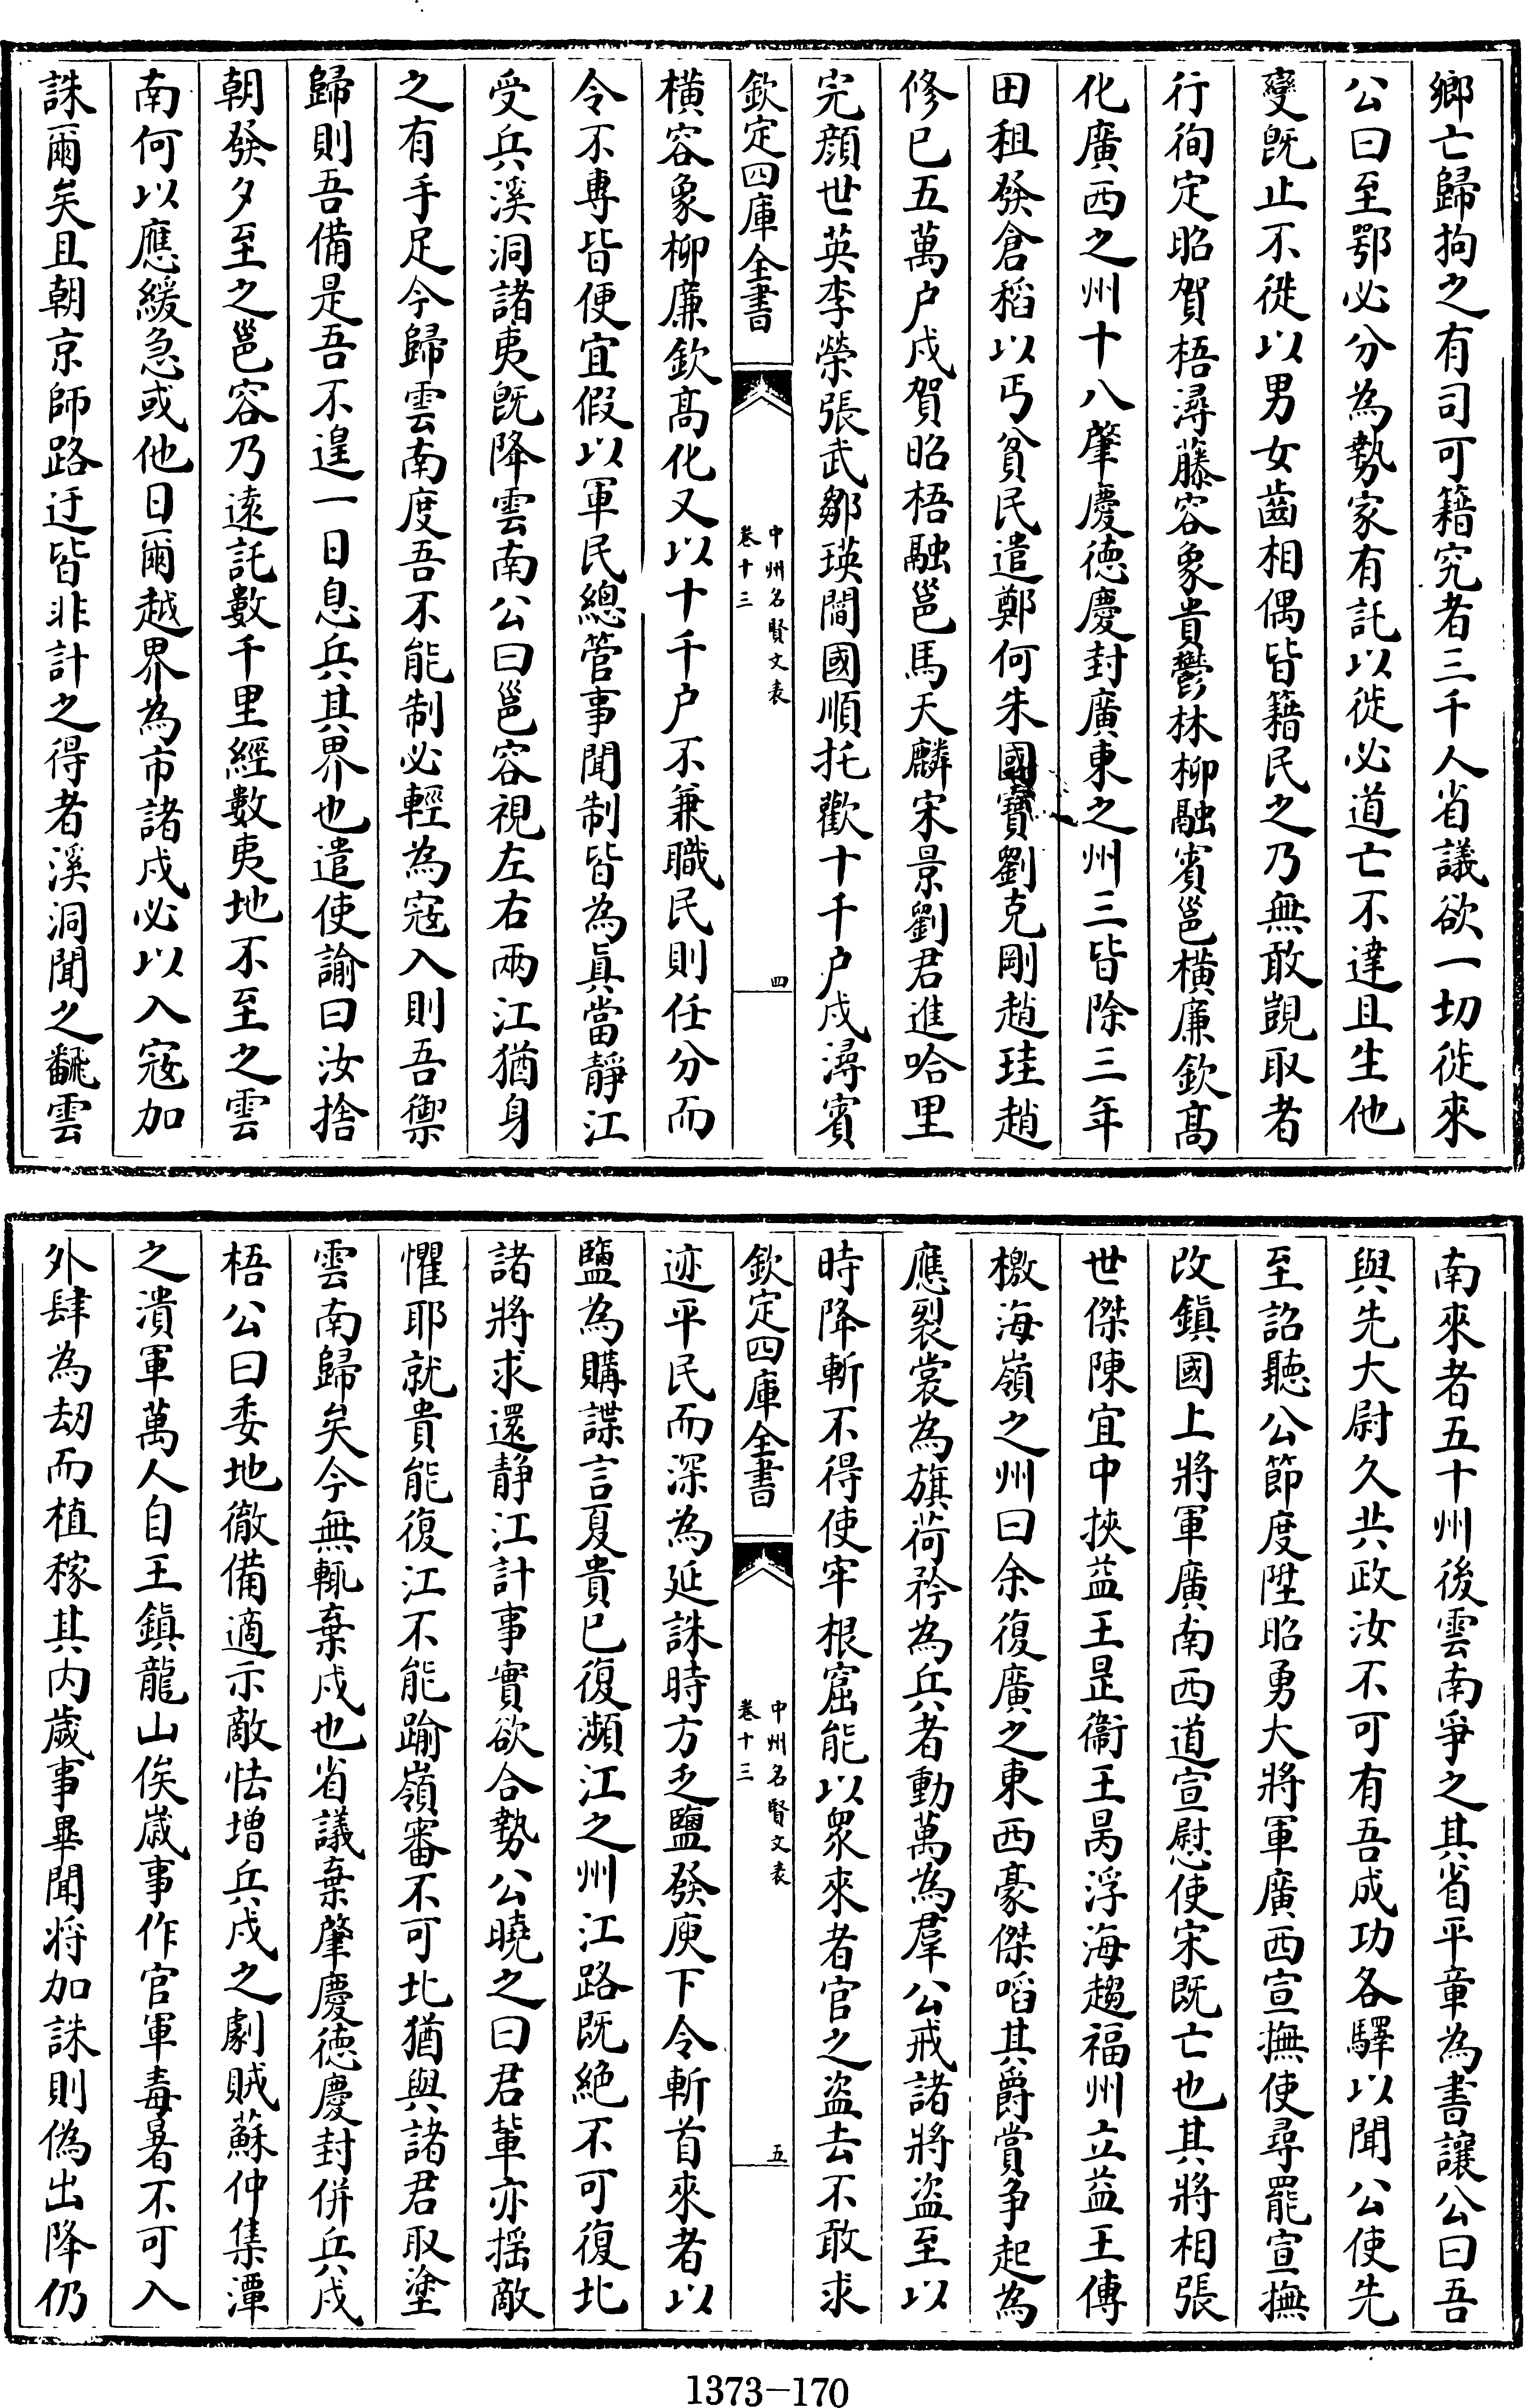 鄉亡歸拘之有司可籍究者三千人省議欲一切徙來
公曰至鄂必分為勢家有託以徙必道亡不達且生他
變旣止不徙以男女齒相偶皆籍民之乃無敢覬取者
行徇定昭賀梧潯藤容象貴鬱林柳融賓邕橫廉欽髙
化廣西之州十八肇慶徳慶封廣東之州三皆除三年
田租發倉稻以丐貧民遣鄭何朱國寶劉克剛趙珪趙
修已五萬户戍賀昭梧融邕馬天麟宋景劉君進哈里
完顔世英李榮張武鄒瑛閻國順托歡十千户戍潯賓
欽定四庫全書
中州名賢文表
卷十三
四
橫容象柳廉欽髙化又以十千户不兼職民則任分而
令不專皆便宜假以軍民總管事聞制皆為真當靜江
受兵溪洞諸夷旣降雲南公曰邕容視左右兩江猶身
之有手足今歸雲南度吾不能制必輕為寇入則吾禦
歸則吾備是吾不遑一日息兵其界也遣使諭曰汝捨
朝發夕至之邕容乃遠託數千里經數夷地不至之雲
南何以應緩急或他日爾越界為市諸戍必以入寇加
誅爾矣且朝京師路迂皆非計之得者溪洞聞之飜雲
南來者五十州後雲南爭之其省平章為書讓公曰吾
與先大尉久共政汝不可有吾成功各驛以聞公使先
至詔聽公節度陞昭勇大將軍廣西宣撫使尋罷宣撫
改鎮國上將軍廣南西道宣慰使宋既亡也其將相張
世傑陳宜中挾益王昰衞王昺浮海趨福州立益王傳
檄海嶺之州曰余復廣之東西豪傑㗖其爵賞争起為
應裂裳為旗荷矜為兵者動萬為羣公戒諸將盜至以
時降斬不得使牢根窟能以衆來者官之盜去不敢求
欽定四庫全書
中州名賢文表
卷十三
五
迹平民而深為延誅時方乏鹽發庾下令斬首來者以
鹽為購諜言夏貴已復瀕江之州江路既絶不可復北
諸將求還靜江計事實欲合勢公曉之曰君輩亦揺敵
懼耶就貴能復江不能踰嶺審不可北猶與諸君取塗
雲南歸矣今無輒棄戍也省議棄肇慶徳慶封併兵戍
梧公曰委地徹備適示敵怯增兵戍之劇賊蘇仲集潭
之潰軍萬人自王鎮龍山俟嵗事作官軍毒暑不可入
外肆為刼而植稼其内嵗事畢聞将加誅則偽出降仍
1373-170